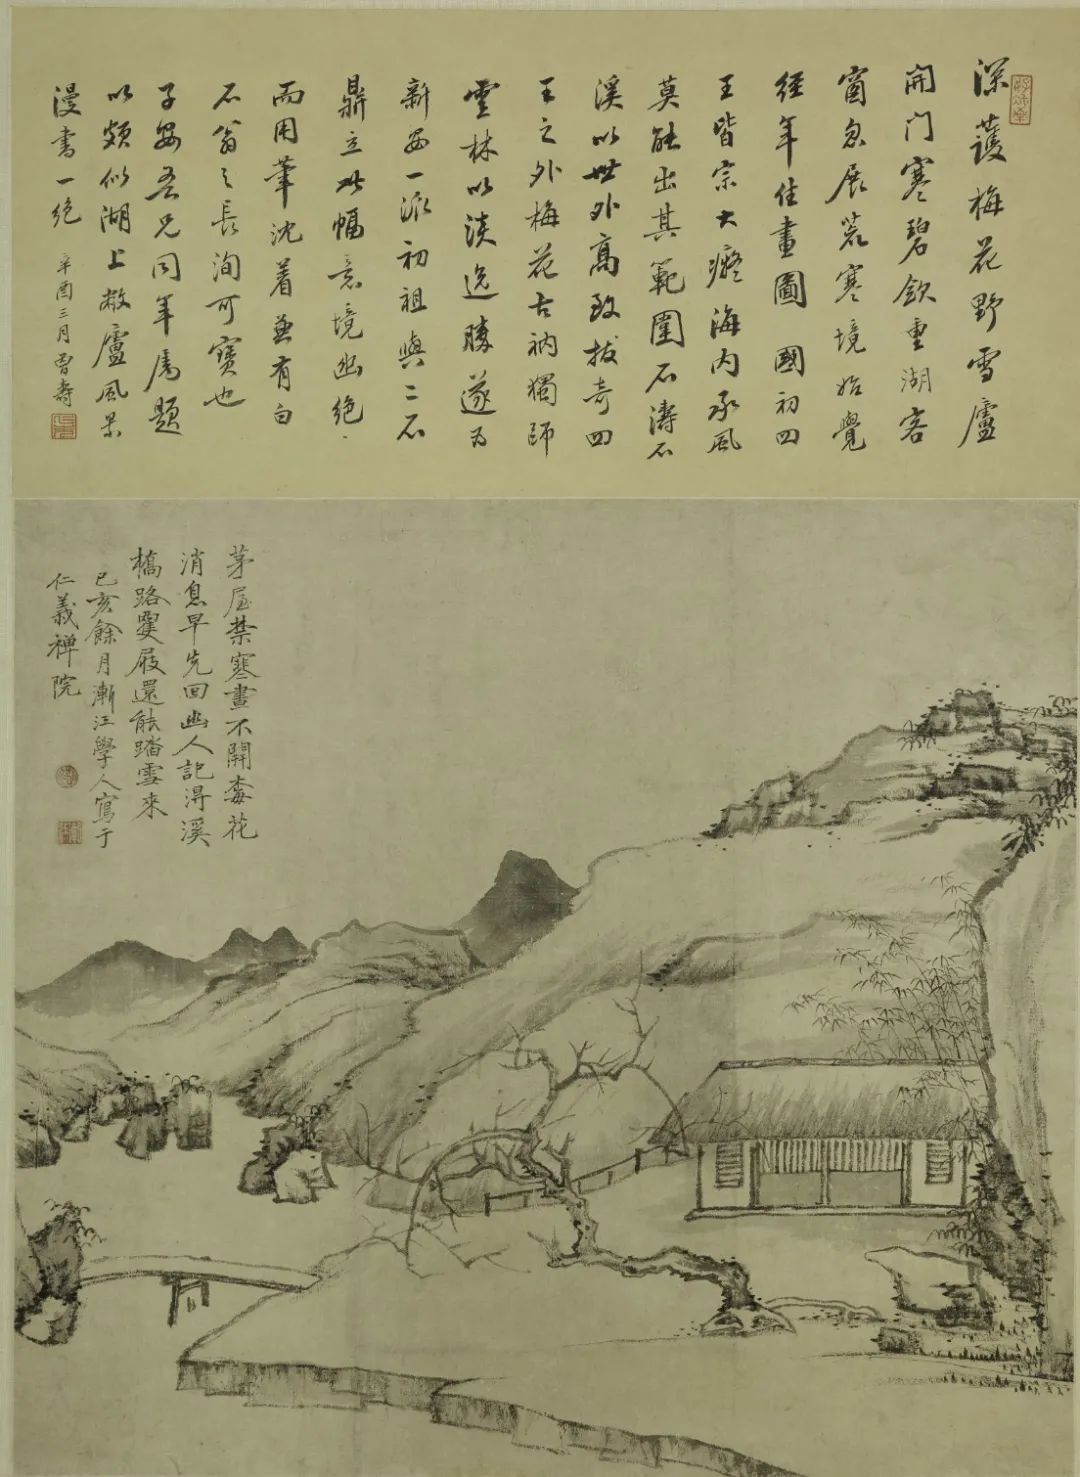 深護梅花野雪廬
開门寒碧欲重湖客
窗忽展荒寒境始覺
經年住畫圖 國初四
王皆宗大癡海内承風
莫能出其範圍石濤石
溪以世外高致拔奇四
王之外梅花古衲獨師
雲林以淡逸勝遂为
新安一派初祖與二石
鼎立此幅意境幽绝
而用筆沈着並有白
石翁之長洵可寶也
子安吾兄同年属題
以頗似湖上敝廬風景
漫書一绝 辛酉三月曾壽
茅屋禁寒晝不開梅花
消息早先回幽人記得溪
橋路雙屐還能踏雪來
己亥餘月漸江學人寫于
仁義禅院